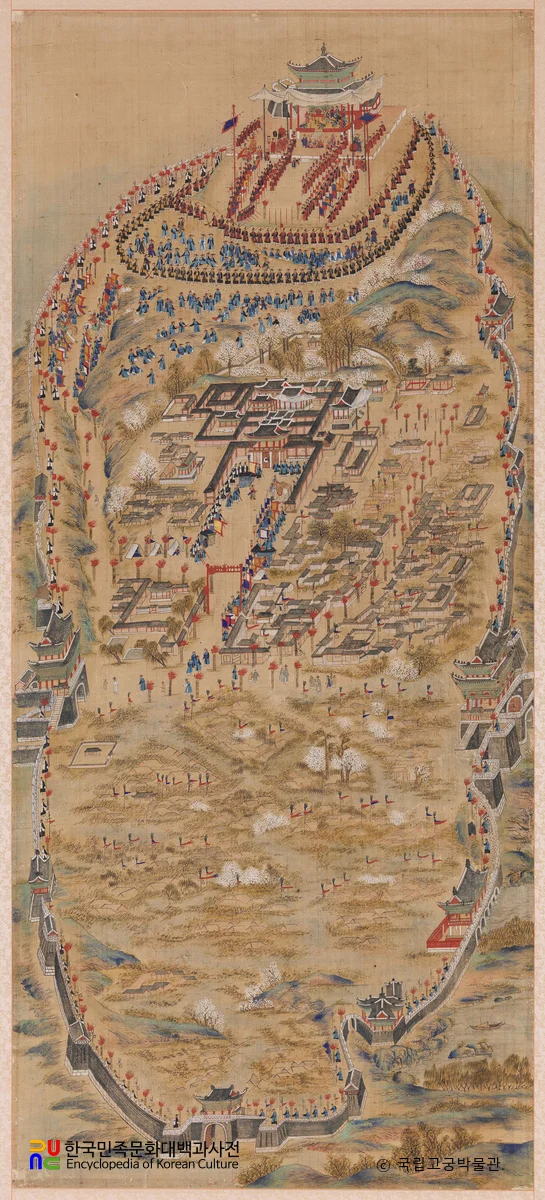 한국민족문화대백과사전
Encyclopedia of Korean Culture
© 국립고궁박물관.